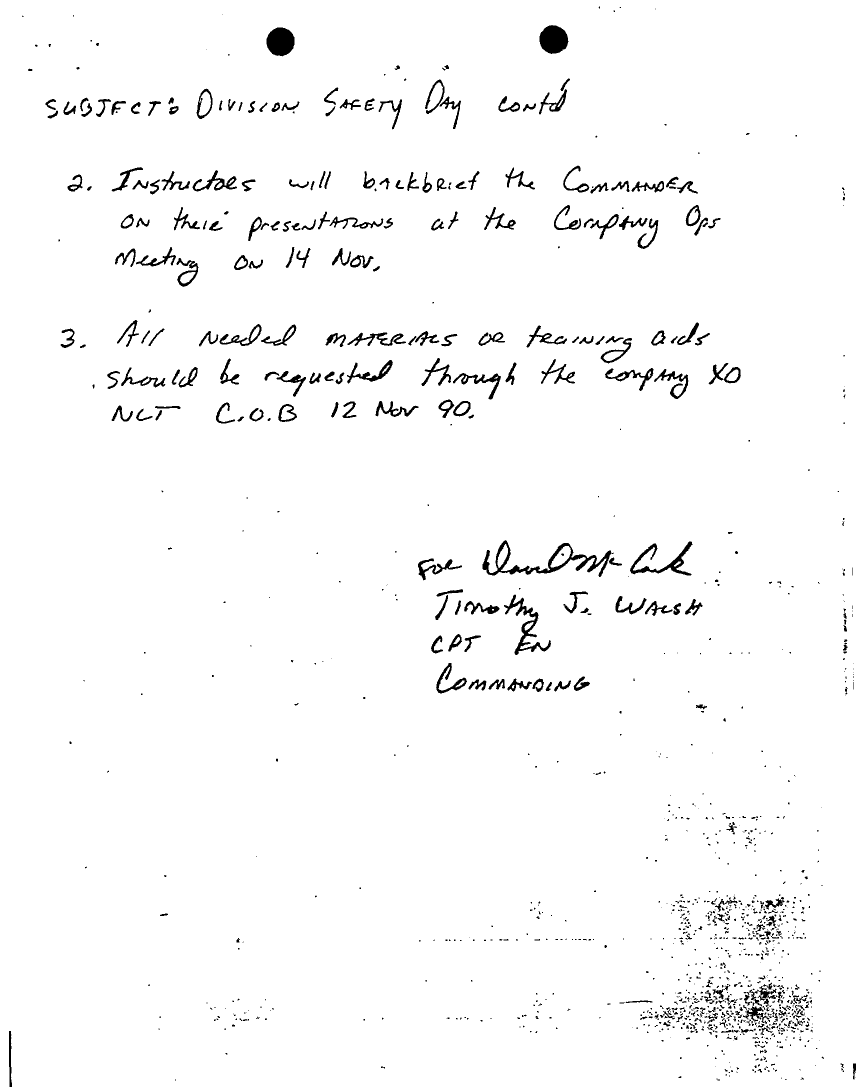 SUBJECT: DIVISION SAFETY DAY CONT'd
2. Instructors will backbrief the COMMANDER
ON their presentations at the Company Ops
Meeting ON 14 Nov.
3. All Needed MATERIALS or training aids
should be requested through the company XO
NLT C.O.B 12 Nov 90.
For David
Timothy J. WALSH
CPT EN
COMMANDING